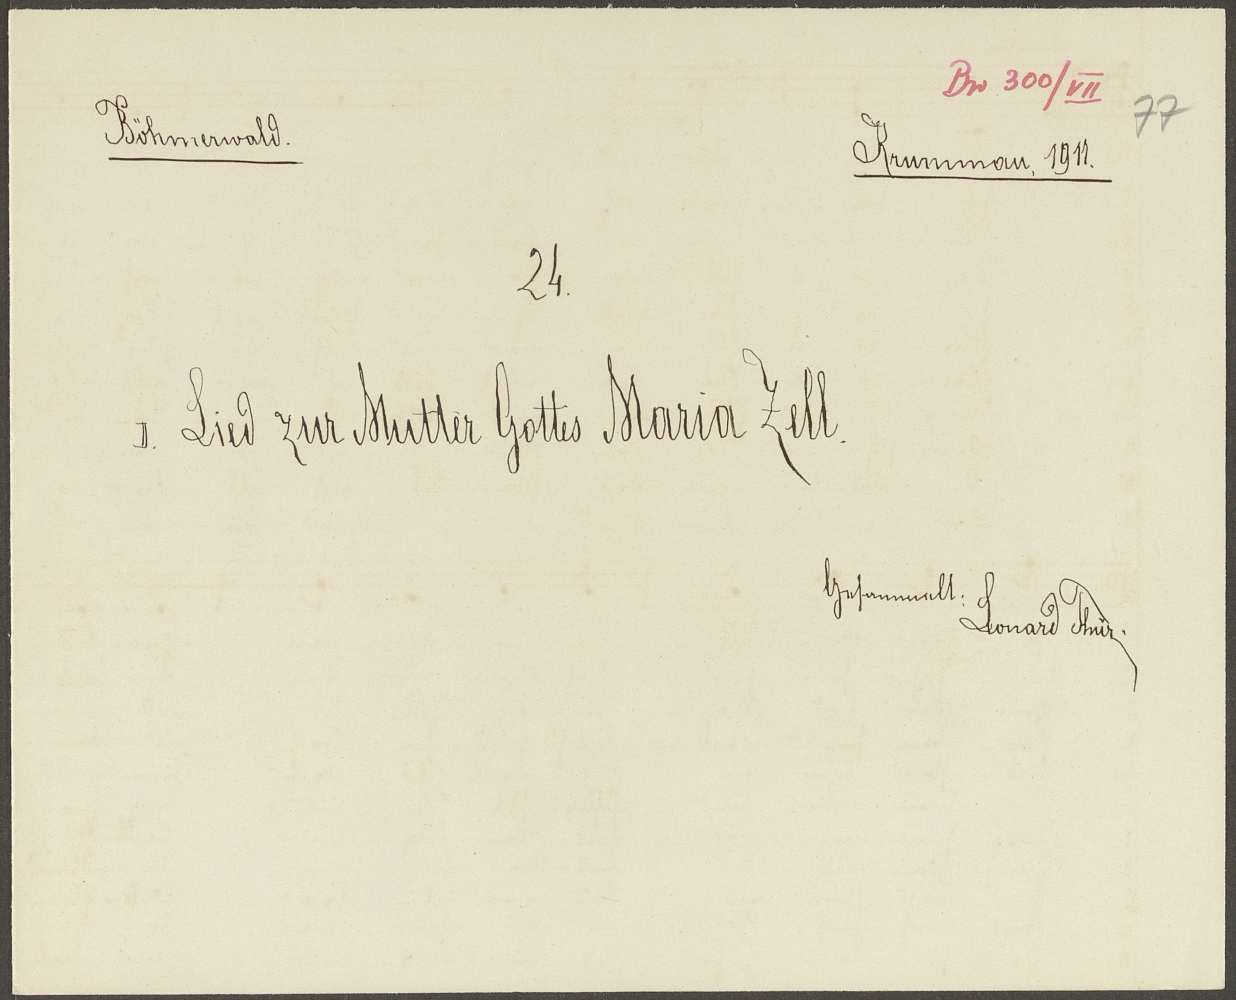 Bw 300/VII
77
Böhmerwald.
Krummau, 1911.
24.
II. Lied zur Mutter Gottes Maria Zell.
Gesammelt:
Leonard Thür.